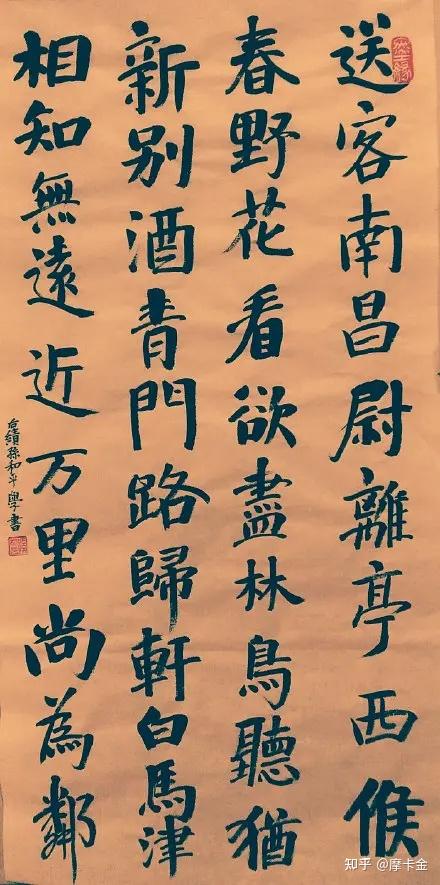 送客南昌尉離亭西候
春野花看欲盡林鳥聽猶
新别酒青門路歸軒白馬津
相知無遠近万里尚為鄰
孫和平學書
知乎 @摩卡金